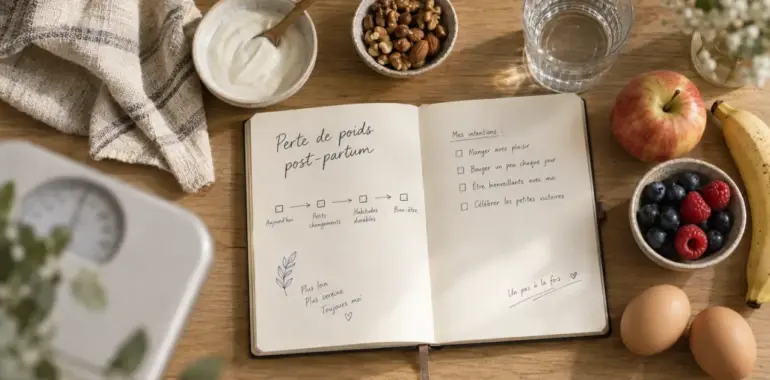 Perte de poids
post-partum
Aujourd'hui
Petits
changements
Habitudes
durables
Bien-être
Plus loin
Plus sereine
Toujours moi
Mes intentions :
Manger avec plaisir
Bouger un peu chaque jour
Être bienveillante avec moi
Célébrer les petites victoires
Un pas à la fois